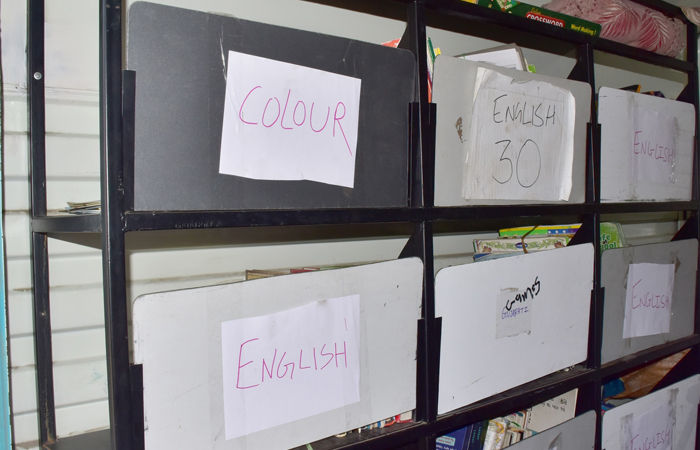 Word Making!
CROSSWORD
COLOUR
ENGLISH
30
ENGLISH
ENGLISH
Games
GUJARATI
ENGLISH
ENGLISH